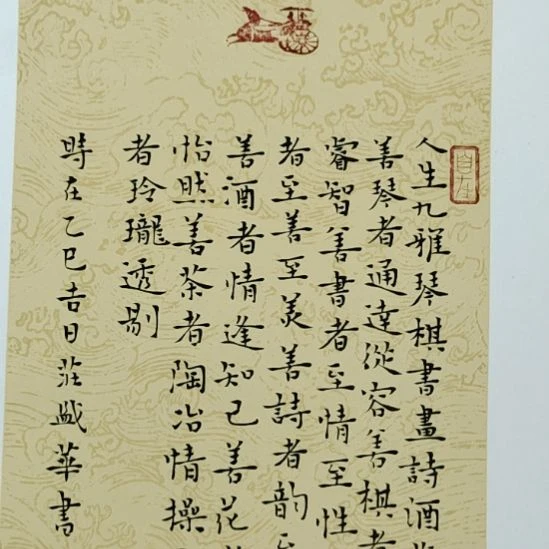 自在
人生九雅琴棋書畫詩酒
善琴者通達從容善棋者
睿智善書者至情至性
者至善至美善詩者韵至
善酒者情逢知己善花
怡然善茶者陶冶情操
者玲瓏透剔
時在乙巳吉日莊戚華書